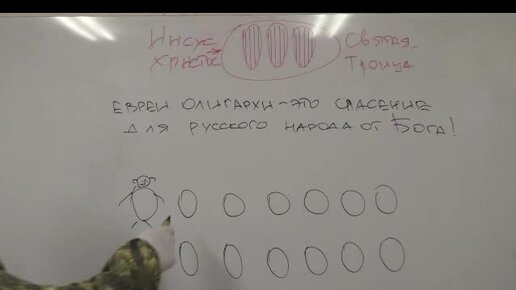 Иисус
Христос
Святая
Троица
ЕВРЕИ ОЛИГАРХИ - ЭТО СПАСЕНИЕ
ДЛЯ РУССКОГО НАРОДА ОТ БОГА!